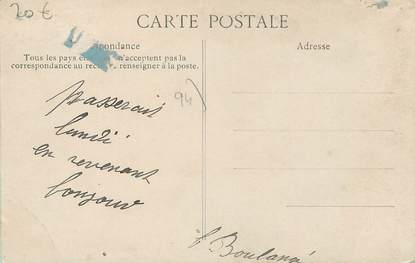 20 €
CARTE POSTALE
pondance
Tous les pays n'acceptent pas la
correspondance au re renseigner à la poste.
Adresse
94
passerais
lundi
en revenant
bonjour
Boulangé